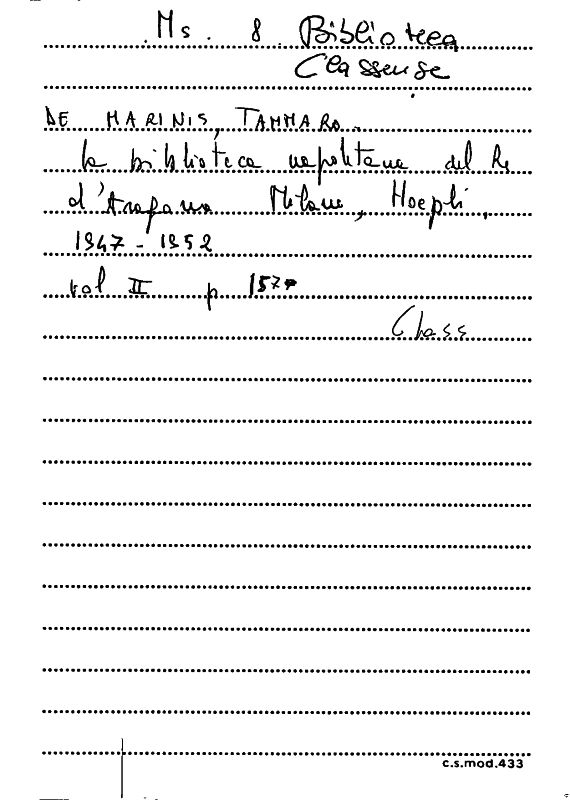 Ms. 8 Biblioteca
Classense
DE MARINIS, TAMMARO.
La biblioteca napoletana del Re
d'Aragona Milano, Hoepli,
1947-1952
vol II p
Class
c.s.mod.433